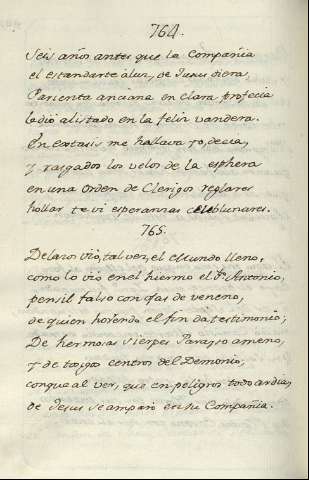 764.
Seis años antes que la Compañia
el estandarte à luz, de Jesus diera,
Parienta anciana en clara profecia
le dió alistado en la feliz vandera.
En extasis me hallava Yo, decia,
y rasgados los velos de la esphera
en una Orden de Clerigos reglares
hollar te vi esperanzas sublunares.
765.
De lazos vió, tal vez, el Mundo lleno,
como lo vio en el hiermo el Pe. Antonio,
pensil falso con de veneno,
de quien horendo el fin da testimonio;
De hermosas sierpes Parayso ameno,
y de centros del Demonio,
conque al ver, que en peligros todo ardia,
de Jesus se amparò en su Compañia.